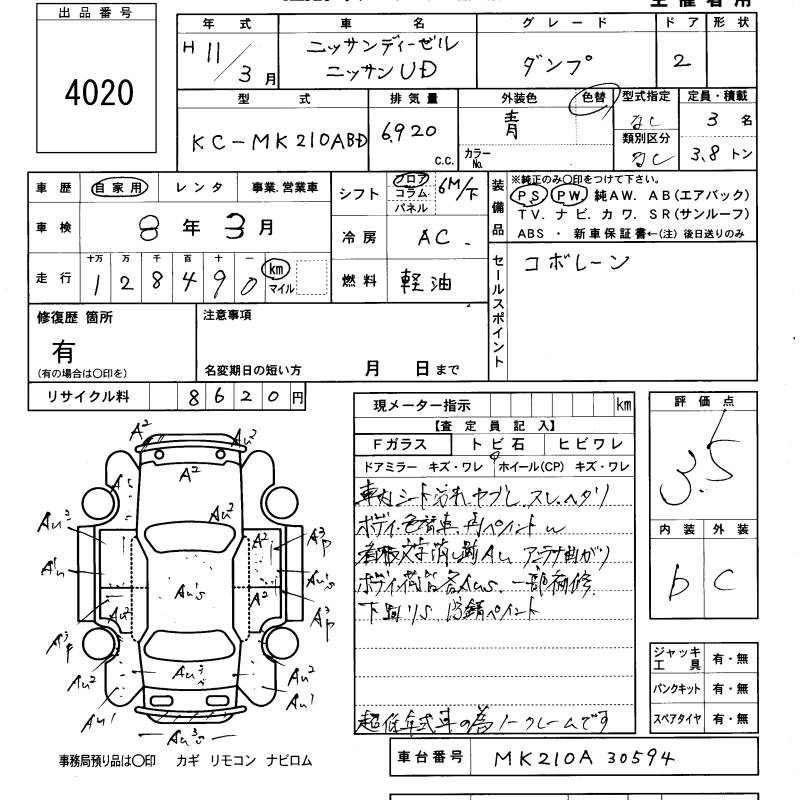 出品番号
4020
年式
H 11/3月
車名
ニッサンディーゼル
ニッサンUD
グレード
ダンプ
ドア
2
形状
型式
KC-MK210ABD
排気量
6920
C.C.
外装色
色替
青
カラーNo.
型式指定
なし
類別区分
なし
定員・積載
3 名
3.8 トン
車歴
自家用
レンタ
事業.営業車
車検
8年3月
走行
十万 万 千 百 十 一
1 2 8 4 9 0
km
マイル
シフト
フロア
コラム
パネル
6M/下
冷房
AC.
燃料
軽油
装備品
※純正のみ〇印をつけて下さい。
PS PW 純AW. AB(エアバック)
TV. ナビ. カワ. SR(サンルーフ)
ABS ・ 新車保証書←(注) 後日送りのみ
セールスポイント
コボレーン
修復歴 箇所
有
(有の場合は〇印を)
注意事項
名変期日の短い方
月 日まで
リサイクル料
8620円
現メーター指示
km
【査定員記入】
Fガラス
トビ石
ヒビワレ
ドアミラー キズ・ワレ
ホイール(CP) キズ・ワレ
車内シート汚れ.ヤブレ.スレ.ヘタリ
ボディ色替車.再ペイントW
看板文字消し跡AU アンテナ曲がり
ボディ荷台各AUS. 一部補修
下廻りS 防錆ペイント
超低年式車の為ノークレームです
評価点
3.5
内装
外装
D
C
ジャッキ
工具
有・無
パンクキット
有・無
スペアタイヤ
有・無
A2
AU2
A2
AU2
AU3
A2
A3P
AU'S
AU'S
A2
AU2
A3P
AU2
AU3
AU2
AU1
AU1
AU3S
事務局預り品は〇印 カギ リモコン ナビロム
車台番号
MK210A 30594